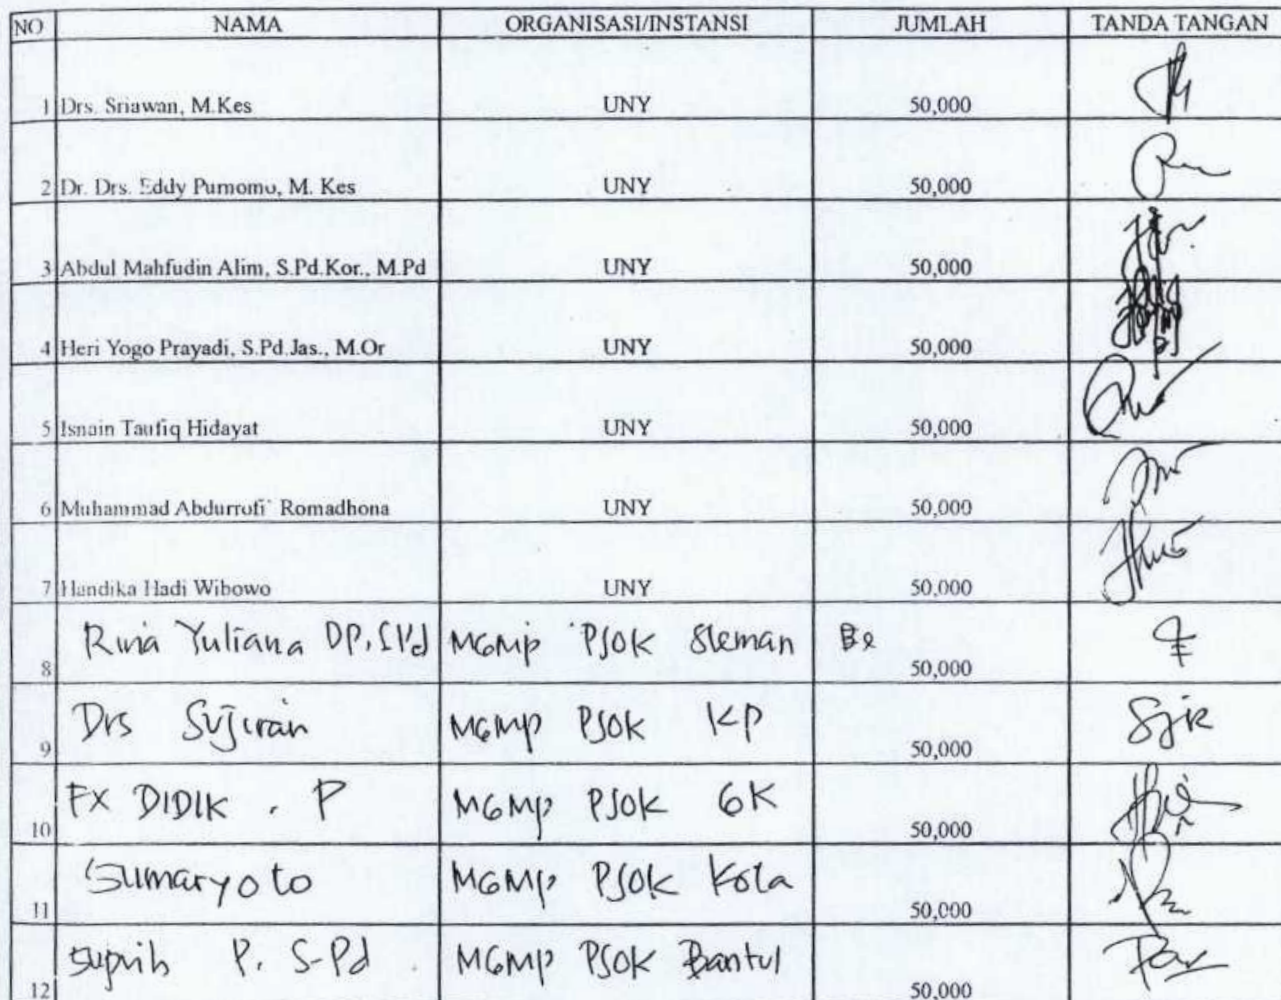 NO NAMA ORGANISASI/INSTANSI JUMLAH TANDA TANGAN
1 Drs. Sriawan, M.Kes UNY 50,000
2 Dr. Drs. Eddy Purnomo, M. Kes UNY 50,000
3 Abdul Mahfudin Alim, S.Pd.Kor., M.Pd UNY 50,000
4 Heri Yogo Prayadi, S.Pd.Jas., M.Or UNY 50,000
5 Isnain Taufiq Hidayat UNY 50,000
6 Muhammad Abdurrofi` Romadhona UNY 50,000
7 Handika Hadi Wibowo UNY 50,000
8 Yuliana DP, S.Pd MGMP PJOK Sleman 50,000
9 Drs Sujiran MGMP PJOK KP 50,000
10 FX DIDIK . P MGMP PJOK GK 50,000
11 Sumaryoto MGMP PJOK Kota 50,000
12 P. S.Pd MGMP PJOK Bantul 50,000